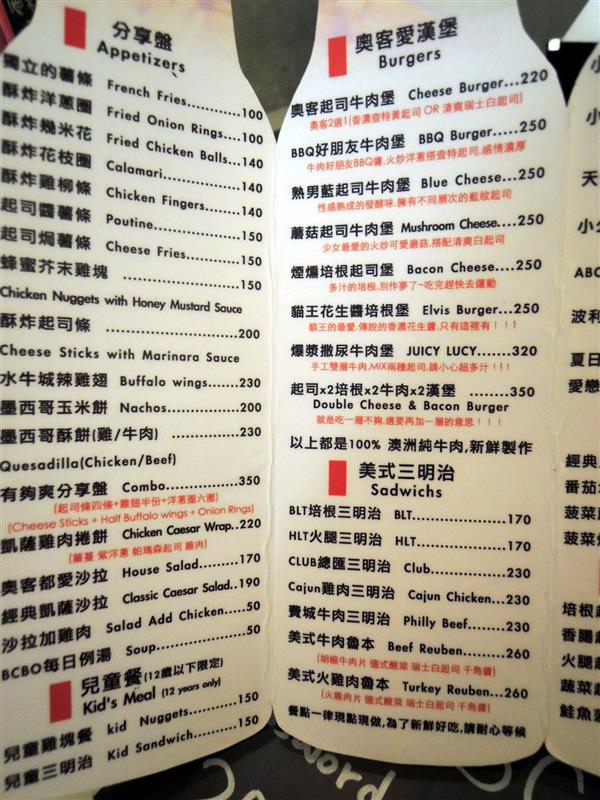 分享盤
Appetizers
獨立的薯條 French Fries...........100
酥炸洋蔥圈 Fried Onion Rings....100
酥炸幾米花 Fried Chicken Balls...140
酥炸花枝圈 Calamari...............140
酥炸雞柳條 Chicken Fingers.......140
起司醬薯條 Poutine................150
起司焗薯條 Cheese Fries..........150
蜂蜜芥末雞塊 ...................150
Chicken Nuggets with Honey Mustard Sauce
酥炸起司條 .......................200
Cheese Sticks with Marinara Sauce
水牛城辣雞翅 Buffalo wings......230
墨西哥玉米餅 Nachos............200
墨西哥酥餅(雞/牛肉) ............230
Quesadilla(Chicken/Beef)
有夠爽分享盤 Combo............350
(起司條四條+雞翅半份+洋蔥圈六圈)
(Cheese Sticks + Half Buffalo wings + Onion Rings)
凱薩雞肉捲餅 Chicken Caesar Wrap..220
(蘿蔓 紫洋蔥 帕瑪森起司 雞肉)
奧客都愛沙拉 House Salad.........170
經典凱薩沙拉 Classic Caesar Salad..190
沙拉加雞肉 Salad Add Chicken.....50
BCBO每日例湯 Soup...............50
兒童餐(12歲以下限定)
Kid's Meal (12 years only)
兒童雞塊餐 kid Nuggets..........150
兒童三明治 Kid Sandwich.........150
奧客愛漢堡
Burgers
奧客起司牛肉堡 Cheese Burger...220
奧客2選1(香濃查特黃起司 OR 清爽瑞士白起司)
BBQ好朋友牛肉堡 BBQ Burger.....250
牛肉好朋友BBQ醬,火炒洋蔥搭查特起司,感情濃厚
熟男藍起司牛肉堡 Blue Cheese...250
性感熟成的發酵味,擁有不同層次的藍紋起司
蘑菇起司牛肉堡 Mushroom Cheese....250
少女最愛的火炒可愛蘑菇,搭配清爽白起司
煙燻培根起司堡 Bacon Cheese....250
多汁的培根,別作夢了~吃完趕快去運動
貓王花生醬培根堡 Elvis Burger...250
貓王的最愛,傳說的香濃花生醬,只有這裡有!!!
爆漿撒尿牛肉堡 JUICY LUCY.......320
手工雙層牛肉,MIX兩種起司,請小心超多汁!!!
起司x2培根x2牛肉x2漢堡 ........350
Double Cheese & Bacon Burger
就是吃一層不夠,還要再加一層的意思!!!
以上都是100% 澳洲純牛肉,新鮮製作
美式三明治
Sadwichs
BLT培根三明治 BLT.................170
HLT火腿三明治 HLT................170
CLUB總匯三明治 Club..............230
Cajun雞肉三明治 Cajun Chicken...230
費城牛肉三明治 Philly Beef........230
美式牛肉魯本 Beef Reuben.......260
(胡椒牛肉片 德式酸菜 瑞士白起司 千島醬)
美式火雞肉魯本 Turkey Reuben...260
(火雞肉片 德式酸菜 瑞士白起司 千島醬)
餐點一律現點現做,為了新鮮好吃,請耐心等候
天
小
ABC
波利
夏日
愛戀
經典
番茄
菠菜
菠菜
培根
香腸
火腿
蔬菜
鮭魚